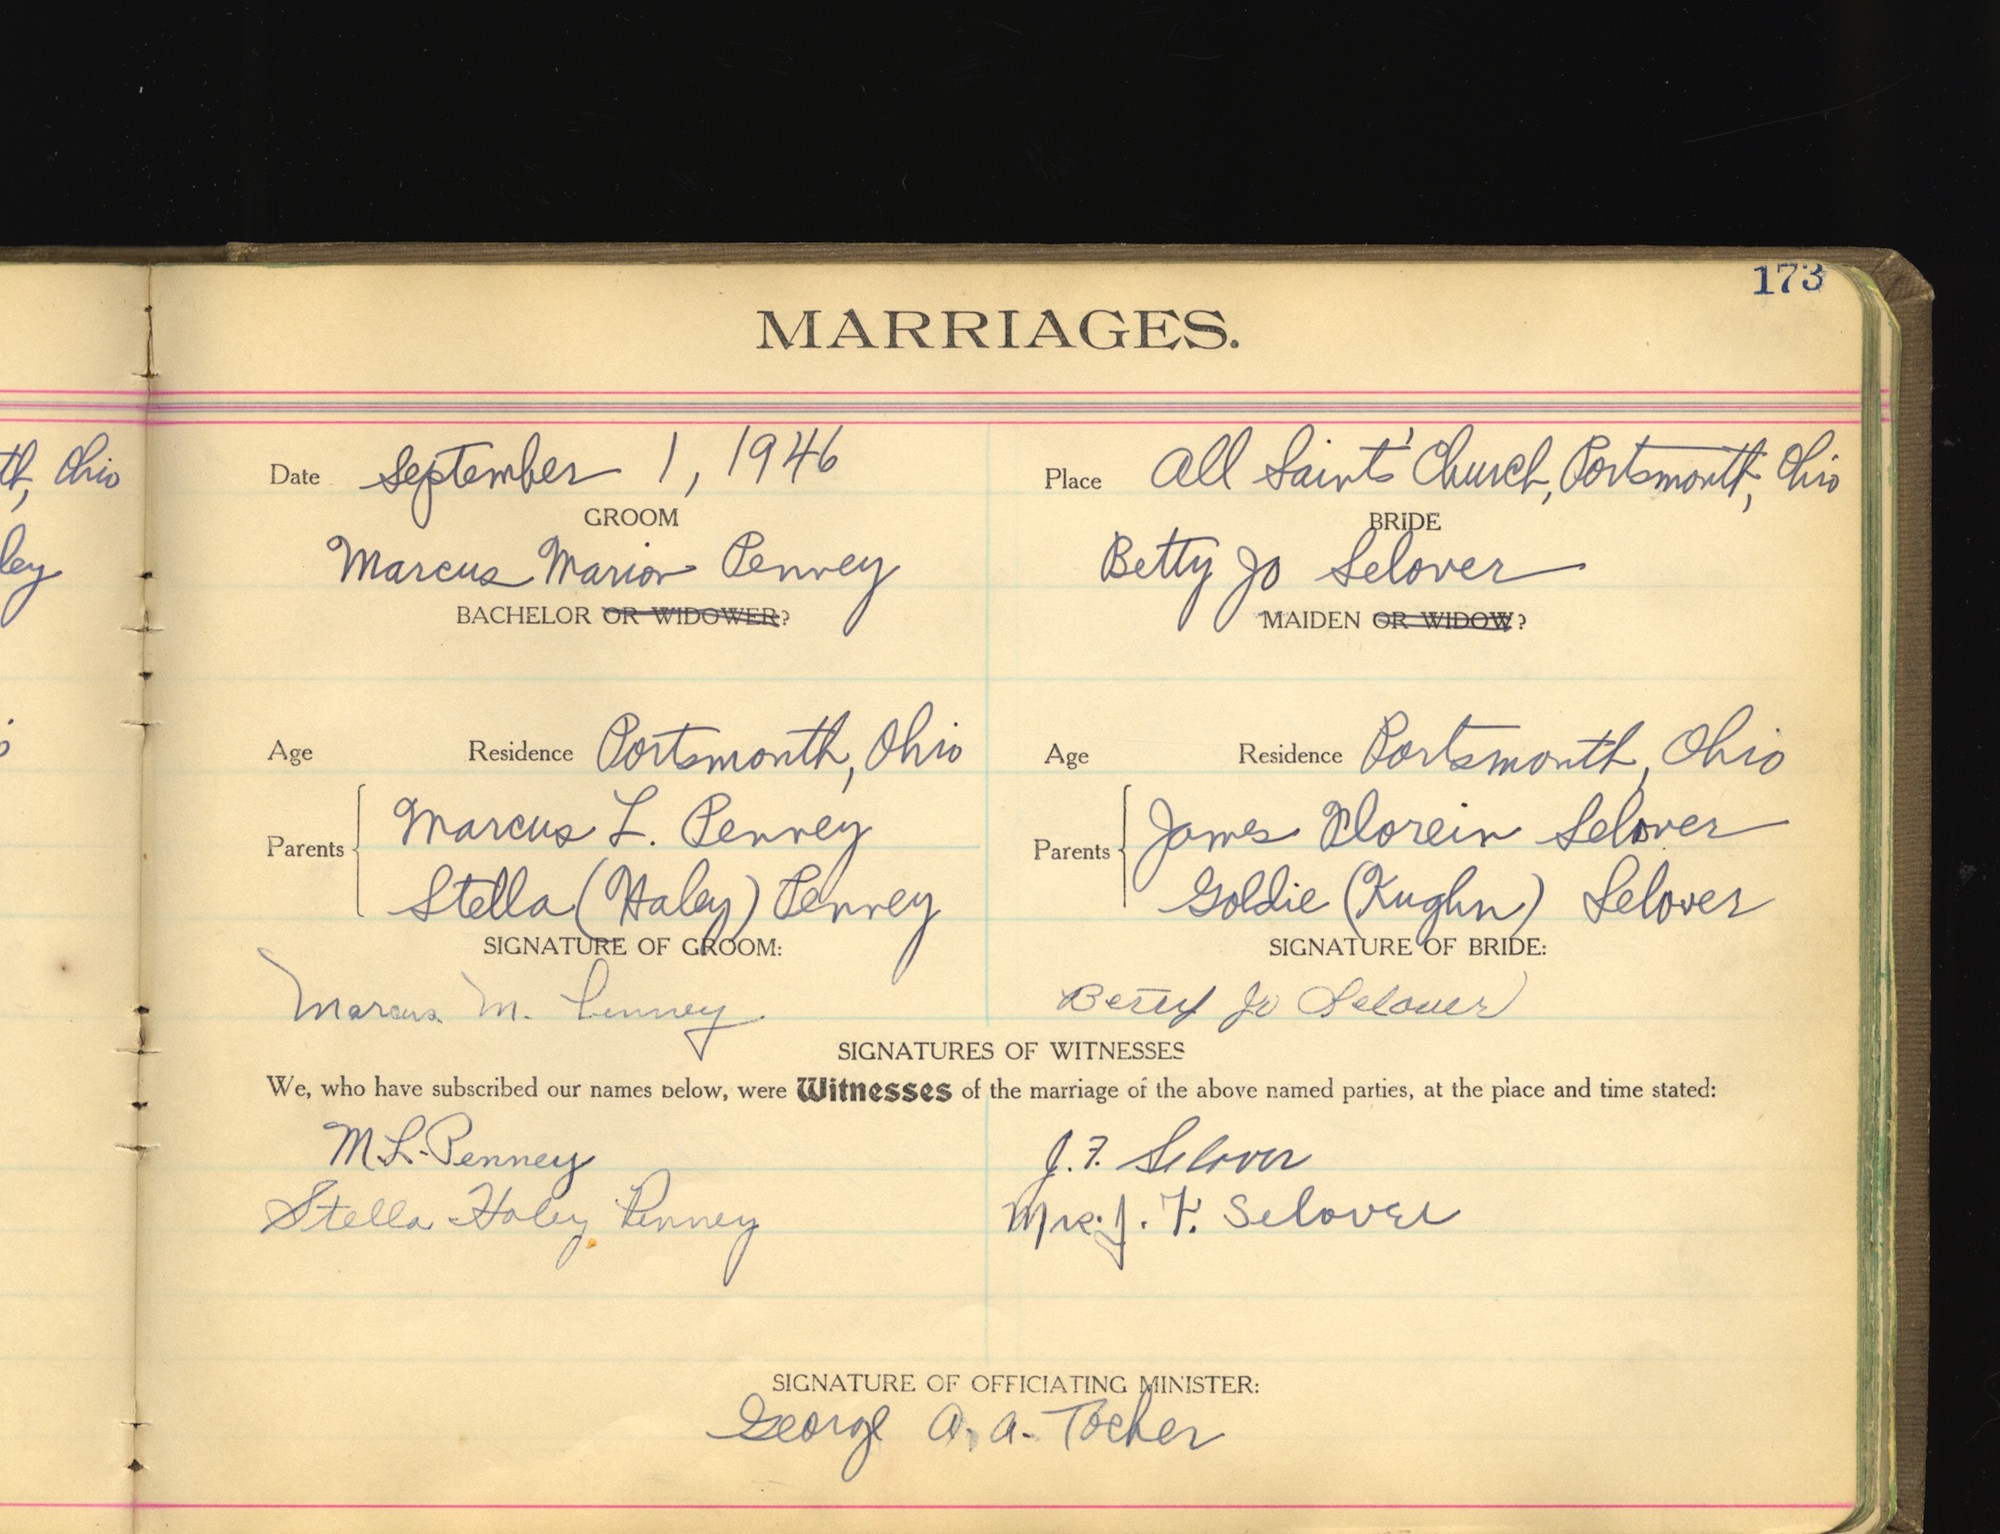 173
MARRIAGES.
th, Ohio
ley
Date September 1, 1946 Place All Saints' Church, Portsmouth, Ohio
GROOM BRIDE
Marcus Marion Penney Betty Jo Selover
BACHELOR OR WIDOWER? MAIDEN OR WIDOW?
Age Residence Portsmouth, Ohio Age Residence Portsmouth, Ohio
Parents Marcus L. Penney Parents James Florein Selover
Stella (Haley) Penney Goldie (Kughn) Selover
SIGNATURE OF GROOM: SIGNATURE OF BRIDE:
Marcus M. Penney Betty Jo Selover
SIGNATURES OF WITNESSES
We, who have subscribed our names below, were Witnesses of the marriage of the above named parties, at the place and time stated:
M. L. Penney J. F. Selover
Stella Haley Penney Mrs. J. F. Selover
SIGNATURE OF OFFICIATING MINISTER:
George A. A. Tocher